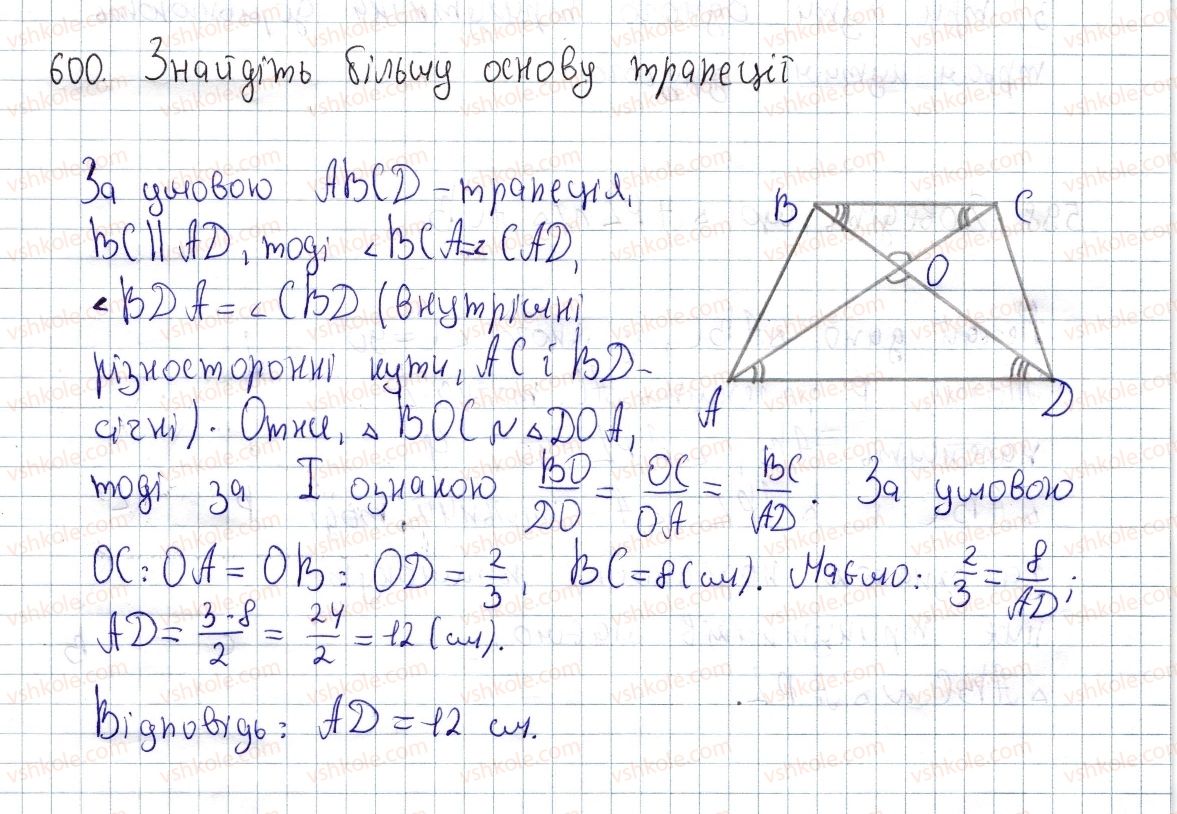 600. Знайдіть більшу основу трапеції
За умовою ABCD - трапеція,
BC || AD, тоді ∠BCA = ∠CAD,
∠BDA = ∠CBD (внутрішні
різносторонні кути, AC і BD -
січні). Отже, △BOC ~ △DOA,
тоді за I ознакою BO/DO = OC/OA = BC/AD. За умовою
OC : OA = OB : OD = 2/3, BC = 8 (см). Маємо: 2/3 = 8/AD;
AD = 3·8/2 = 24/2 = 12 (см).
Відповідь: AD = 12 см.
B
C
O
A
D
vshkole.com